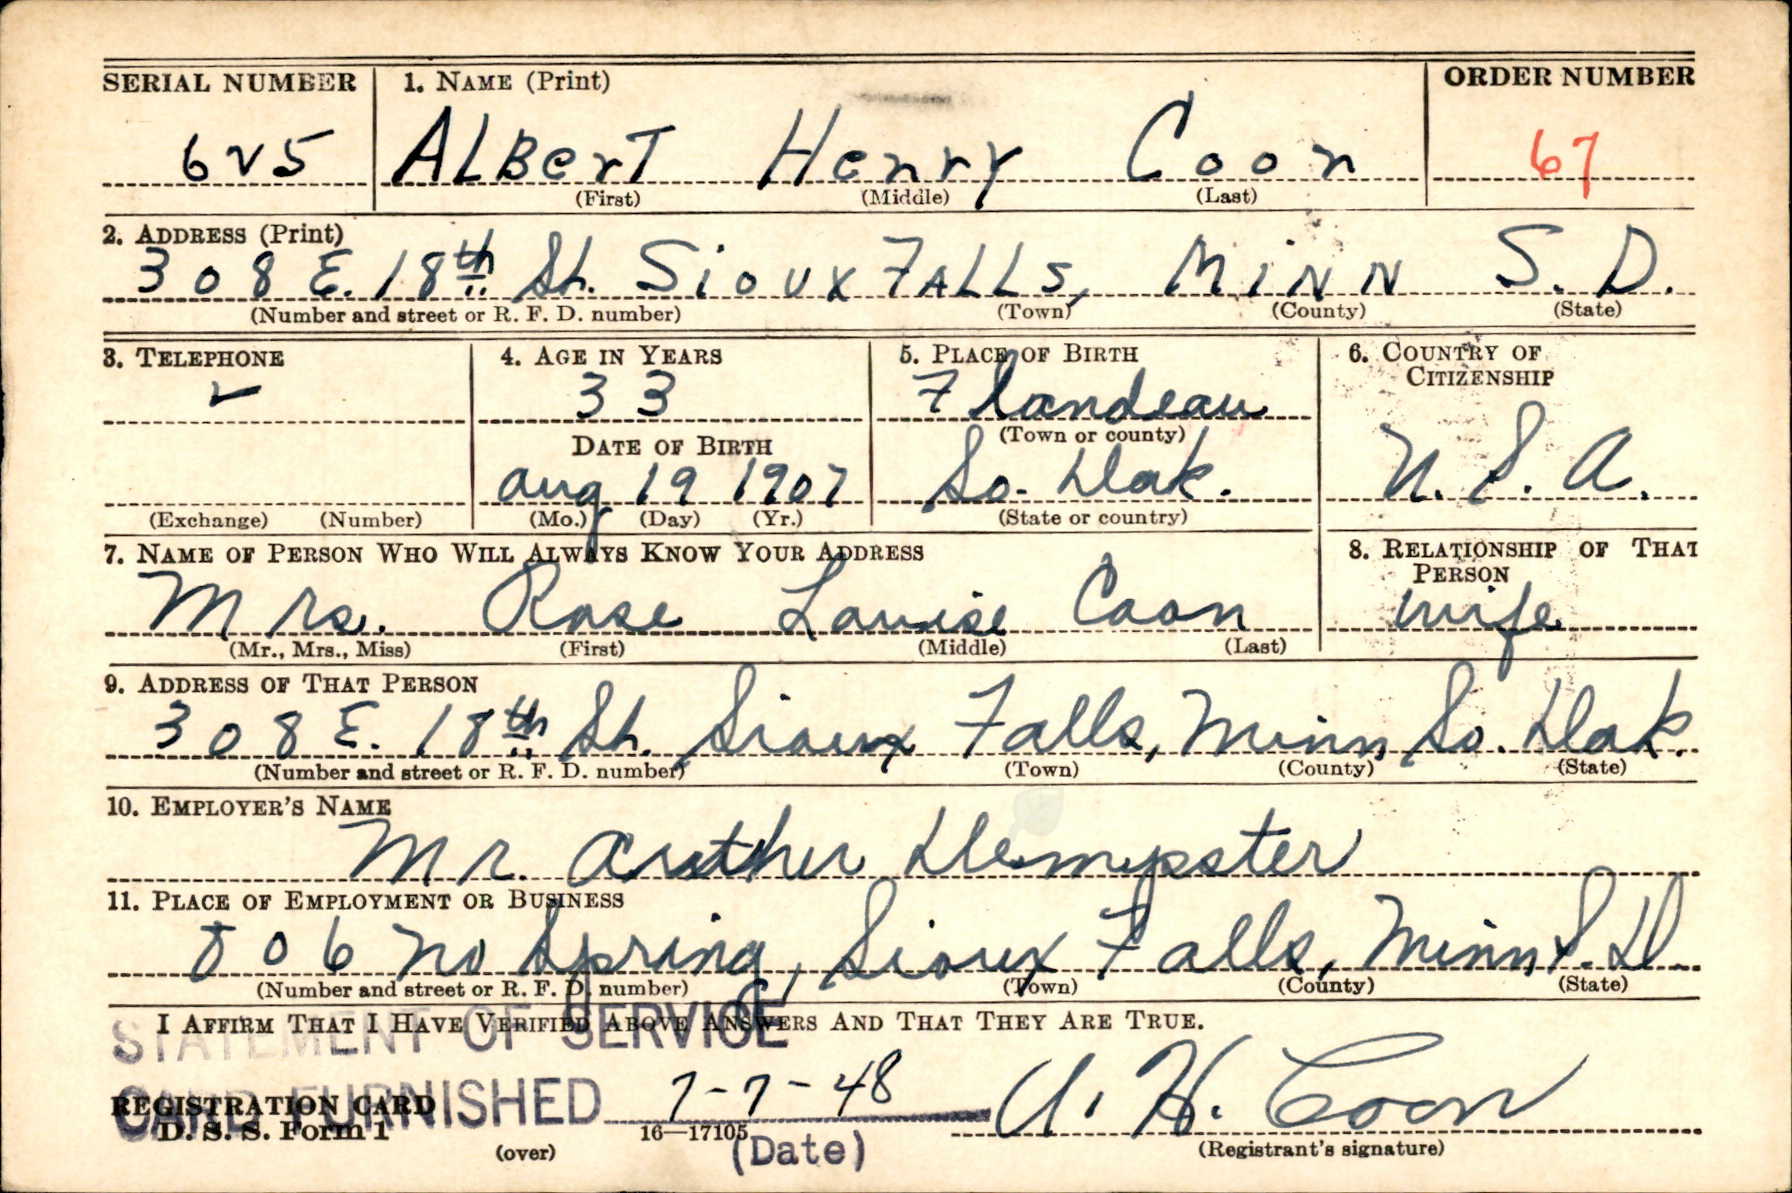 SERIAL NUMBER 1. NAME (Print) ORDER NUMBER
625 ALBerT Henry Coon 67
(First) (Middle) (Last)
2. ADDRESS (Print)
308 E. 18th St. Sioux FALLS, MiNN S. D.
(Number and street or R. F. D. number) (Town) (County) (State)
3. TELEPHONE 4. AGE IN YEARS 5. PLACE OF BIRTH 6. COUNTRY OF CITIZENSHIP
33 Flandeau
DATE OF BIRTH (Town or county)
Aug 19 1907 So. Dak. U. S. A.
(Exchange) (Number) (Mo.) (Day) (Yr.) (State or country)
7. NAME OF PERSON WHO WILL ALWAYS KNOW YOUR ADDRESS 8. RELATIONSHIP OF THAT PERSON
Mrs. Rose Louise Coon wife
(Mr., Mrs., Miss) (First) (Middle) (Last)
9. ADDRESS OF THAT PERSON
308 E. 18th St. Sioux Falls, Minn So. Dak.
(Number and street or R. F. D. number) (Town) (County) (State)
10. EMPLOYER'S NAME
Mr. Arther Dempster
11. PLACE OF EMPLOYMENT OR BUSINESS
806 No Spring, Sioux Falls, Minn S. D.
(Number and street or R. F. D. number) (Town) (County) (State)
I AFFIRM THAT I HAVE VERIFIED ABOVE ANSWERS AND THAT THEY ARE TRUE.
STATEMENT OF SERVICE
CARD FURNISHED 7-7-48 A. H. Coon
REGISTRATION CARD
D. S. S. Form 1 16—17105 (Date) (Registrant's signature)
(over)